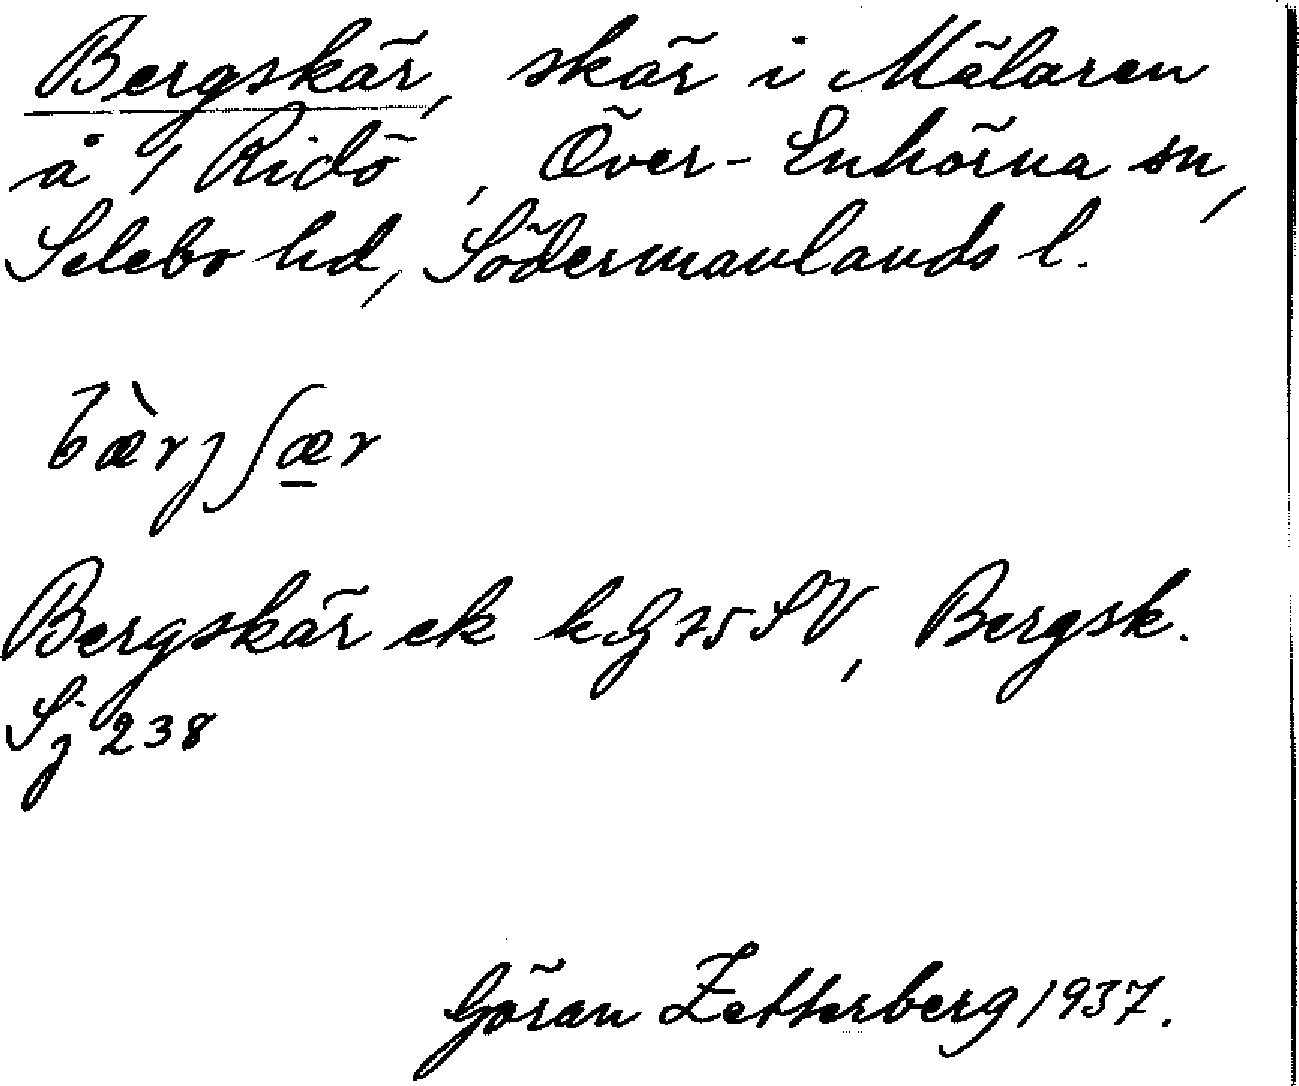 Bergskär, skär i Mälaren
å 1/ Ridö, Över-Enhörna sn,
Selebo hd, Södermanlands l.
bæ̀rjʃæ̲r
Bergskär ek kG 75 SV, Bergsk.
Sj 238
Göran Zetterberg 1937.